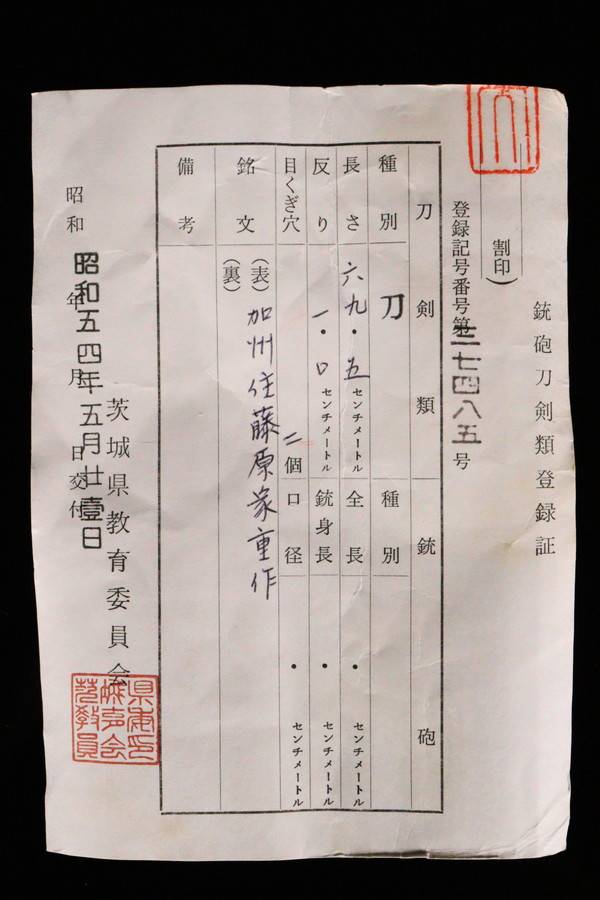 銃砲刀剣類登録証
(割印)
登録記号番号第三七四八五号
刀剣類
銃砲
種別 刀
種別
長さ 六九・五センチメートル
全長 ・ センチメートル
反り 一・〇センチメートル
銃身長 ・ センチメートル
目くぎ穴 二個
口径 ・ センチメートル
銘文 (表) 加州住藤原家重作
(裏)
備考
茨城県教育委員会
昭和 年 月 日交付
昭和五四年五月廿壹日